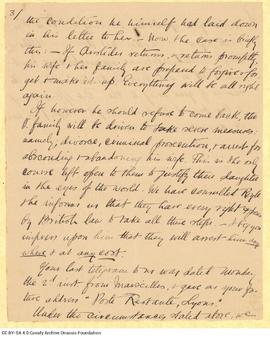 3/
the condition he himself had laid down
in his letter to her. Now the case is briefly
this:- If Aristides returns, & returns promptly,
his wife & her family are prepared to forgive & for-
get & make it up. Everything will be all right
again.
If however he should refuse to come back, the
P. family will be driven to take severe measures:
namely, divorce, criminal prosecution, & arrest for
absconding & abandoning his wife. This is the only
course left open to them to justify their daughter
in the eyes of the world. We have consulted
& he informs us that they have every right
by British law to take all three steps. I beg you
impress upon him that they will arrest him any
where & at any cost.
Your last telegram to us was dated Monday
the 2nd inst from Marseilles, & gave as your fu-
ture address "Poste Restante, Lyons".
Under the circumstances stated above, we
CC BY-SA 4.0 Cavafy Archive Onassis Foundation